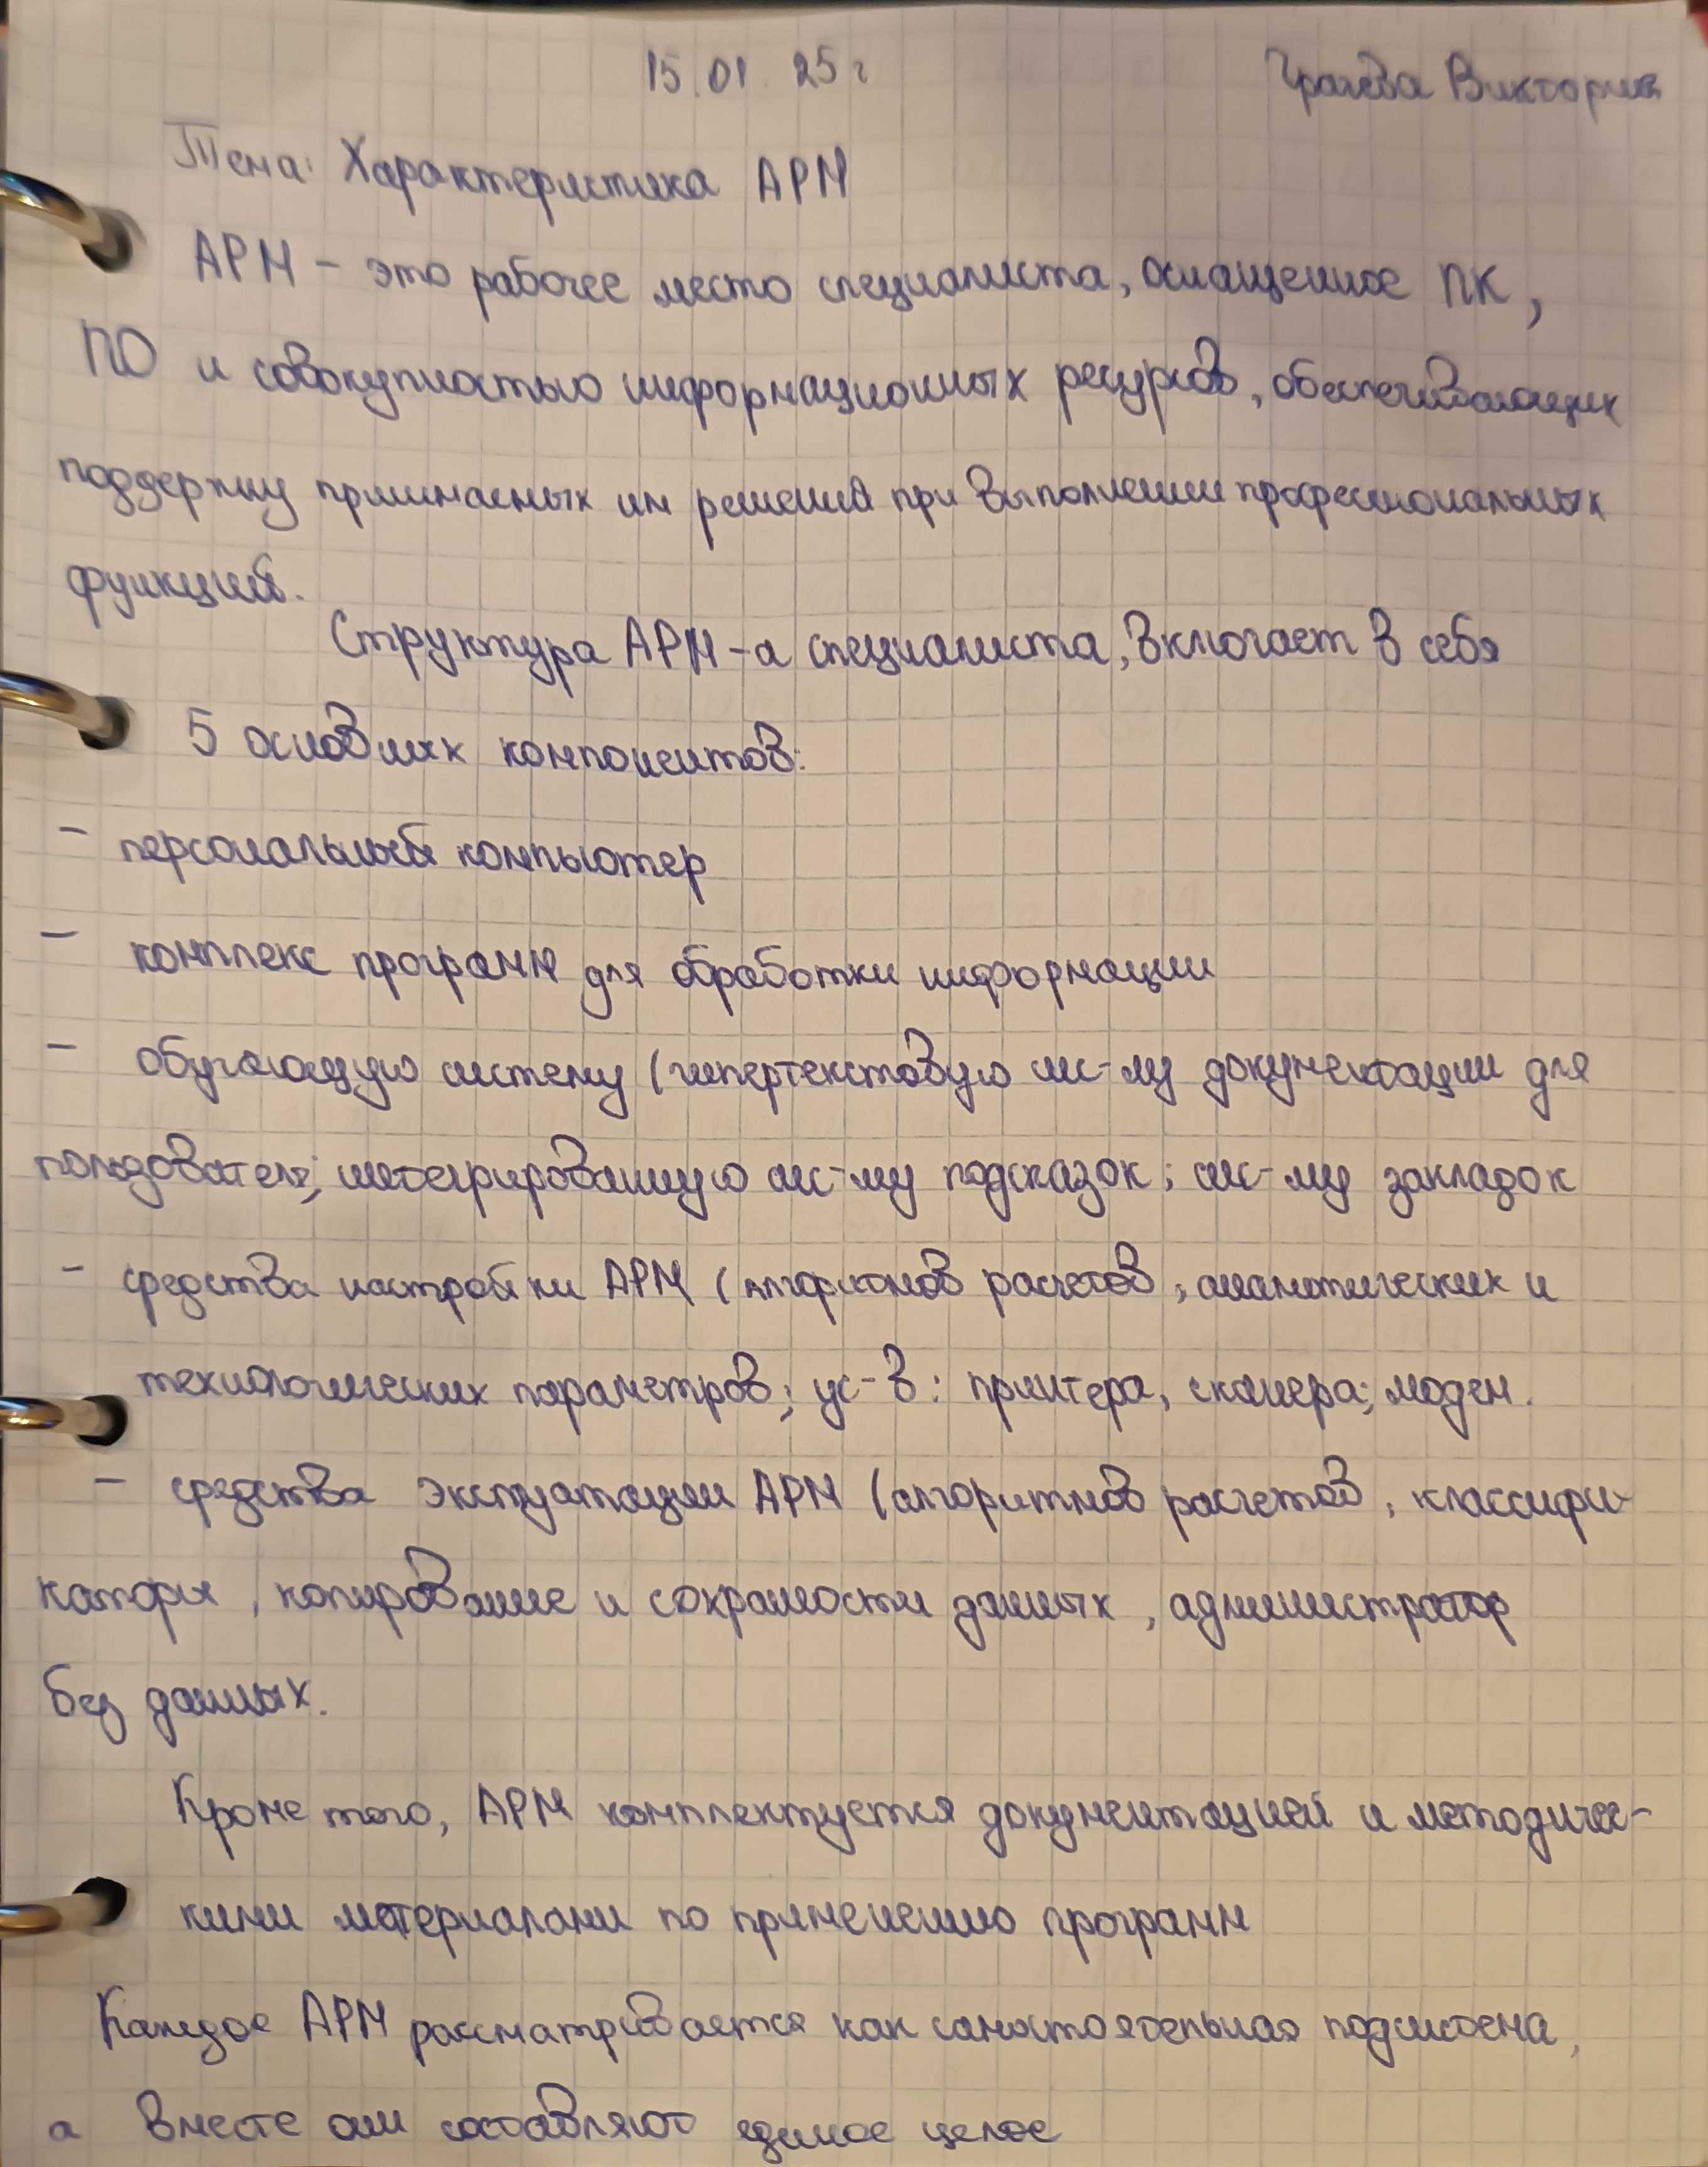 15.01.25 г Грачёва Виктория
Тема: Характеристика АРМ
АРМ - это рабочее место специалиста, оснащенное ПК,
ПО и совокупностью информационных ресурсов, обеспечивающих
поддержку принимаемых им решений при выполнении профессиональных
функций.
Структура АРМ-а специалиста, включает в себя
5 основных компонентов:
- персональный компьютер
- комплекс программ для обработки информации
- обучающую систему (гипертекстовую сис-му документации для
пользователя; интегрированную сис-му подсказок; сис-му закладок
- средства настройки АРМ (алгоритмов расчетов, аналитических и
технологических параметров; ус-в: принтера, сканера; модем.
- средства эксплуатации АРМ (алгоритмов расчетов, классифи-
каторы, копирование и сохранности данных, администратор
без данных.
Кроме того, АРМ комплектуется документацией и методичес-
кими материалами по применению программ
Каждое АРМ рассматривается как самостоятельная подсистема,
а вместе они составляют единое целое